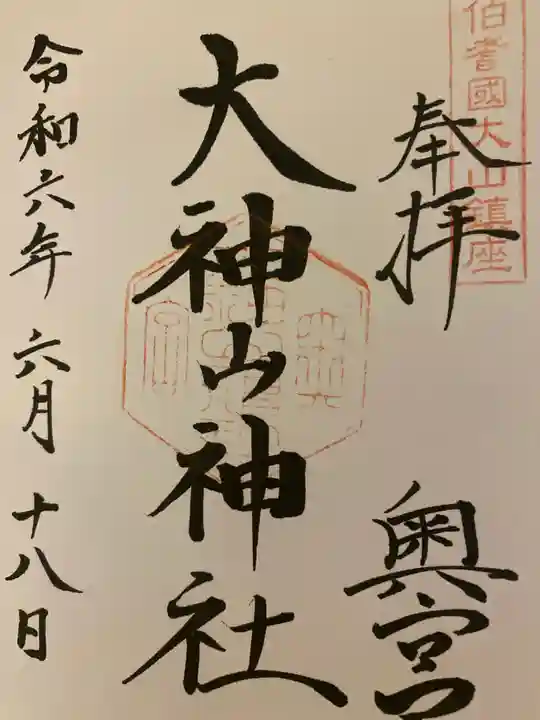 伯耆國大山鎮座
奉拝
奥宮
大神山神社
令和六年六月十八日